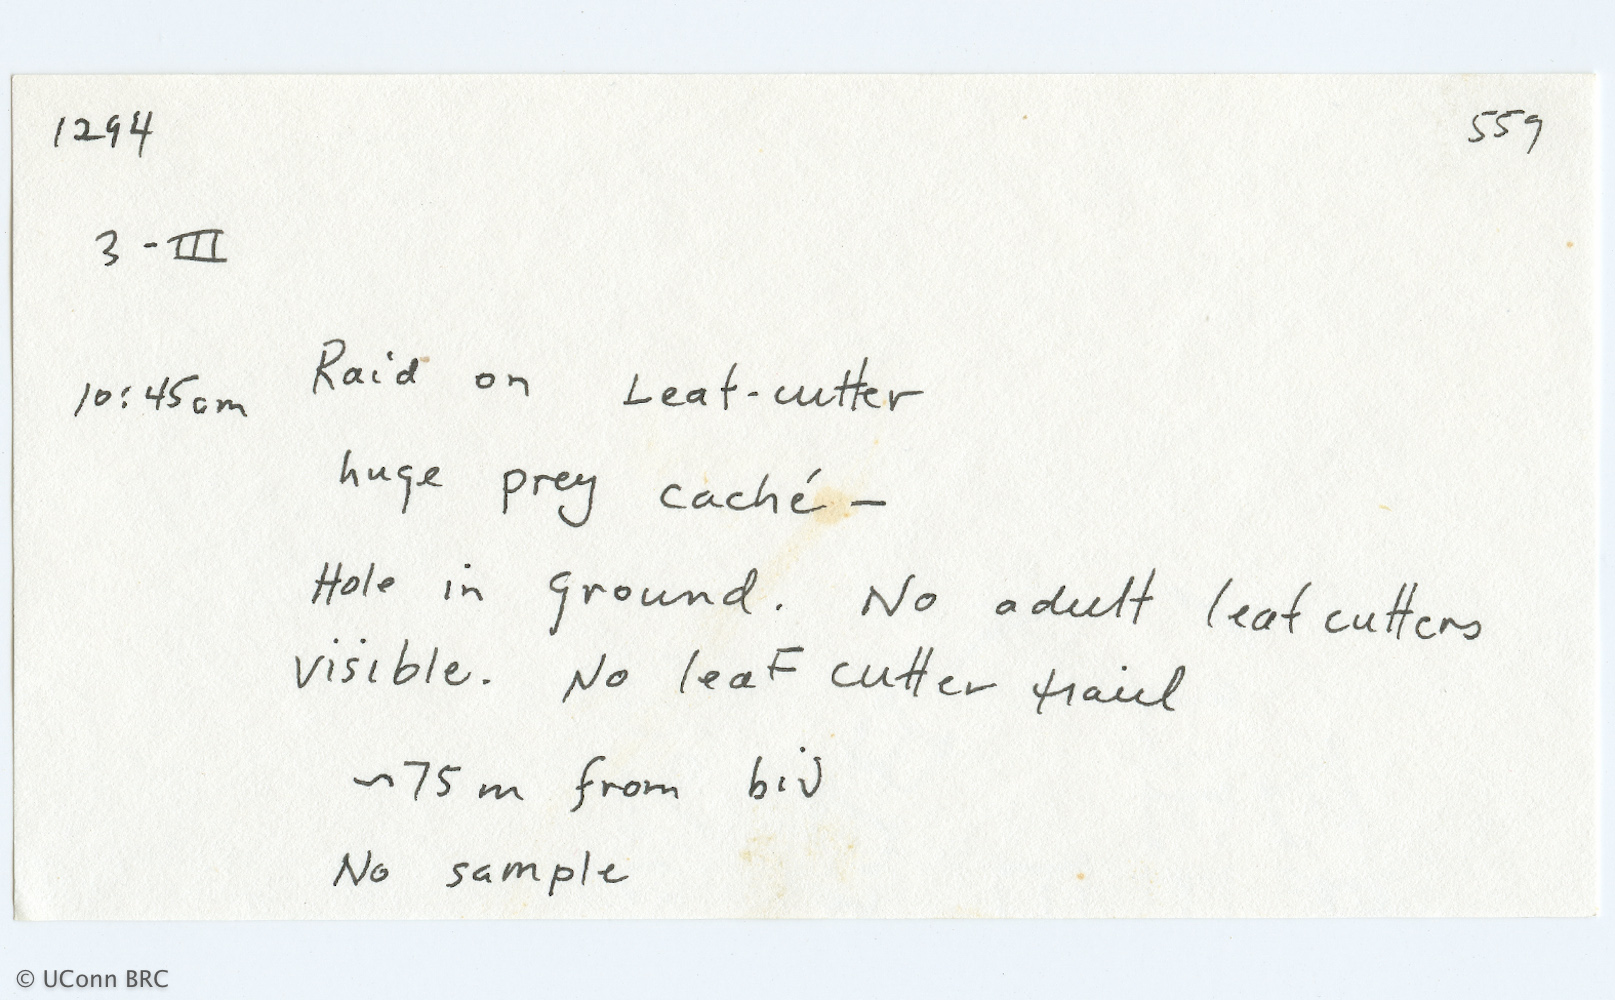 1294 559
3-III
10:45am Raid on Leaf-cutter
huge prey caché —
Hole in ground. No adult leaf cutters
visible. No leaf cutter trail
~75 m from biv
No sample
© UConn BRC